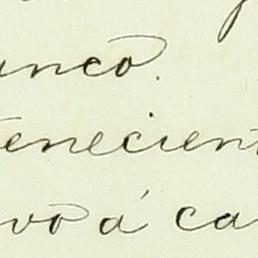 unco.
tenecient
vo á ca